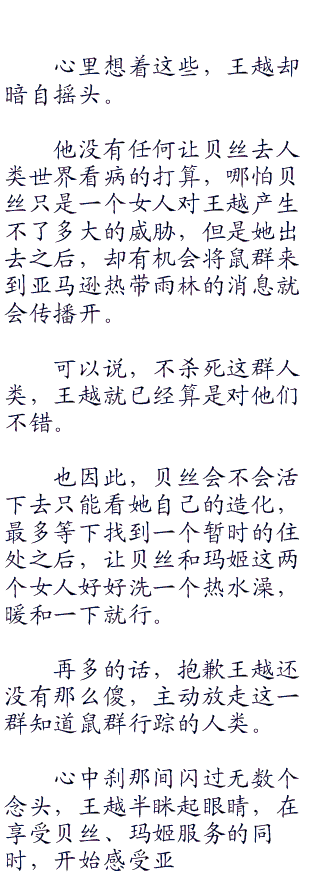 心里想着这些，王越却
暗自摇头。
他没有任何让贝丝去人
类世界看病的打算，哪怕贝
丝只是一个女人对王越产生
不了多大的威胁，但是她出
去之后，却有机会将鼠群来
到亚马逊热带雨林的消息就
会传播开。
可以说，不杀死这群人
类，王越就已经算是对他们
不错。
也因此，贝丝会不会活
下去只能看她自己的造化，
最多等下找到一个暂时的住
处之后，让贝丝和玛姬这两
个女人好好洗一个热水澡，
暖和一下就行。
再多的话，抱歉王越还
没有那么傻，主动放走这一
群知道鼠群行踪的人类。
心中刹那间闪过无数个
念头，王越半眯起眼睛，在
享受贝丝、玛姬服务的同
时，开始感受亚